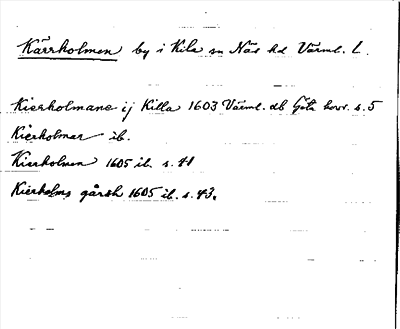 Kärrholmen by i Kila sn Näs hd Värml. L.
Kierholmane ij Killa 1603 Värml. db Göta hovr. s. 5
Kierholmar ib.
Kierholmen 1605 ib. s. 41
Kierholms gårdh 1605 ib. s. 43.